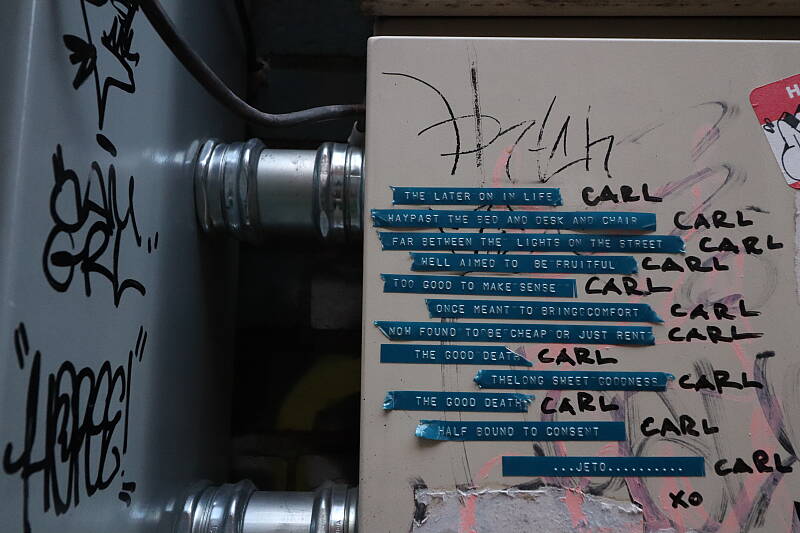 THE LATER ON IN LIFE CARL
HAYPAST THE BED AND DESK AND CHAIR CARL
FAR BETWEEN THE LIGHTS ON THE STREET CARL
WELL AIMED TO BE FRUITFUL CARL
TOO GOOD TO MAKE SENSE CARL
ONCE MEANT TO BRINGCOMFORT CARL
NOW FOUND TO BE CHEAP OR JUST RENT CARL
THE GOOD DEATH CARL
THELONG SWEET GOODNESS CARL
THE GOOD DEATH CARL
HALF BOUND TO CONSENT CARL
...JETO.......... CARL
XO